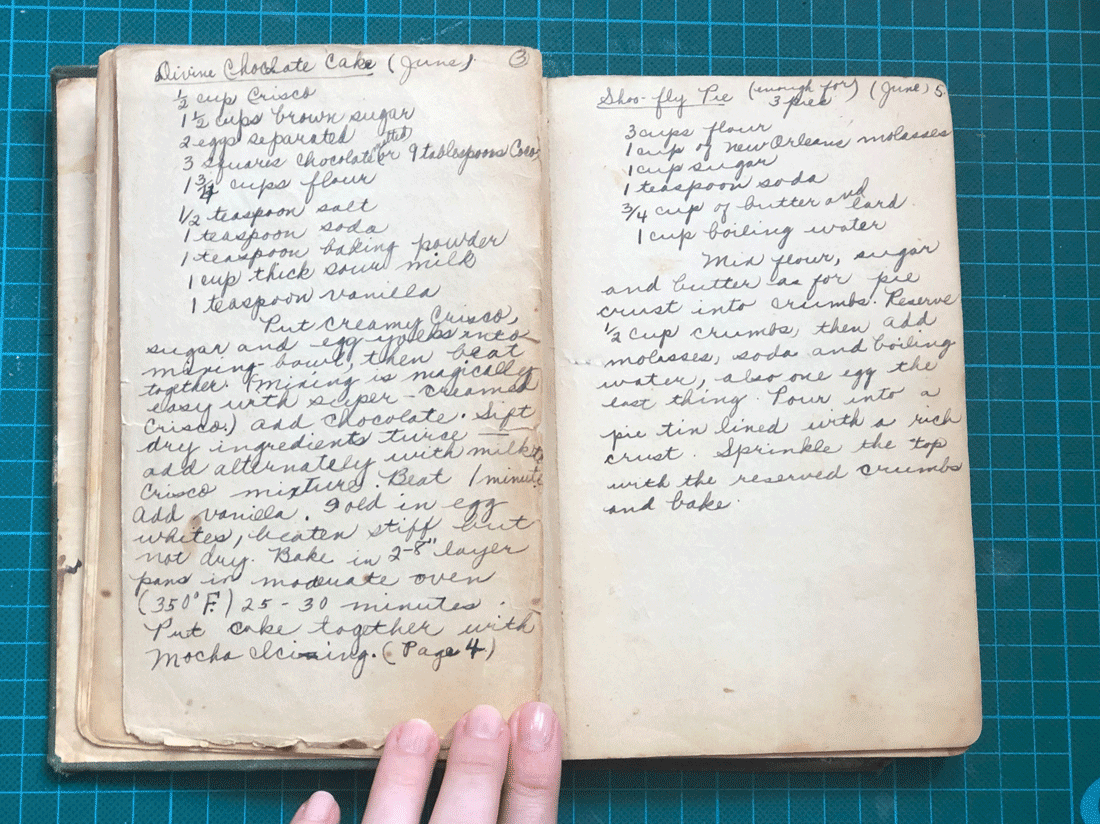 Divine Chocolate Cake (June) 3
1/2 cup Crisco
1 1/2 cups brown sugar
2 eggs separated
3 squares chocolate melted or 9 tablespoons Cocoa
1 3/4 cups flour
1/2 teaspoon salt
1 teaspoon soda
1 teaspoon baking powder
1 cup thick sour milk
1 teaspoon vanilla
Put creamy Crisco,
sugar and egg yolks into
mixing bowl, then beat
together. (Mixing is magically
easy with super-creamed
Crisco.) Add chocolate. Sift
dry ingredients twice —
add alternately with milk to
Crisco mixture. Beat 1 minute
Add vanilla. Fold in egg
whites, beaten stiff but
not dry. Bake in 2-8" layer
pans in moderate oven
(350° F.) 25-30 minutes.
Put cake together with
Mocha Icing. (Page 4)
Shoo-fly Pie (enough for 3 pies) (June) 5.
3 cups flour
1 cup of New Orleans molasses
1 cup sugar
1 teaspoon soda
3/4 cup of butter and lard.
1 cup boiling water
Mix flour, sugar
and butter as for pie
crust into crumbs. Reserve
1/2 cup crumbs, then add
molasses, soda and boiling
water, also one egg the
last thing. Pour into a
pie tin lined with a rich
crust. Sprinkle the top
with the reserved crumbs
and bake.